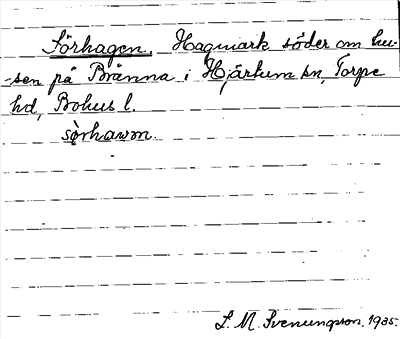 Sörhagen. Hagmark söder om hu-
-sen på Bränna i Hjärtum sn, Torpe
hd, Bohus l.
sọ̀rhawən.
L. M. Svenungson. 1935.